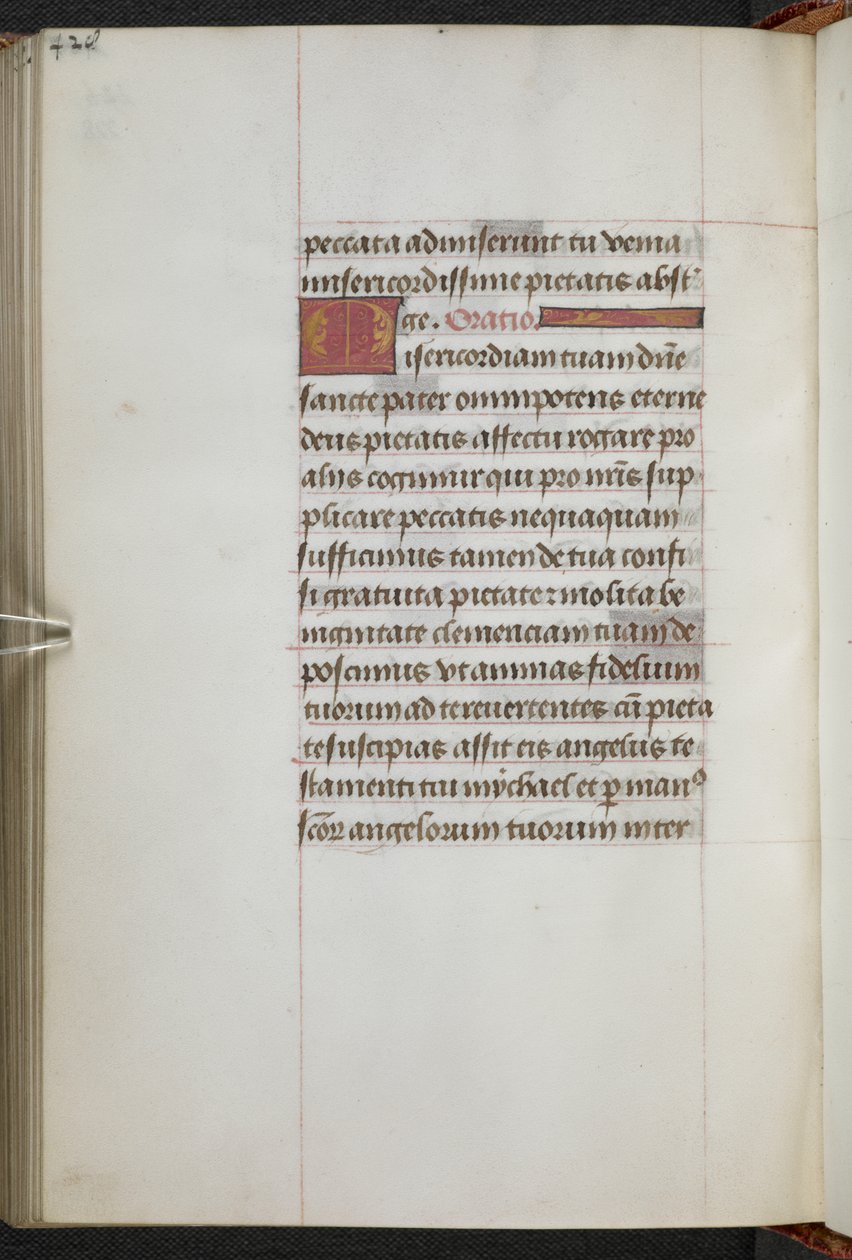 428
peccata admiserunt tu venia
misericordissime pietatis abst'
ge. Oratio.
Misericordiam tuam dñe
sancte pater omnipotens eterne
deus pietatis affectu rogare pro
alijs cogimur qui pro nr̃is sup
plicare peccatis nequaquam
sufficimus tamen de tua confi
si gratuita pietate ⁊ molita be
nignitate clemenciam tuam de
poscimus vt animas fidelium
tuorum ad te reuertentes cũ pieta
te suscipias assit eis angelus te
stamenti tui mÿchael et ꝑ manꝰ
scõꝝ angelorum tuorum inter